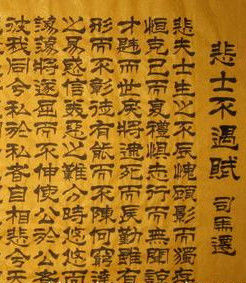 悲士不遇賦 司馬遷
悲夫士生之不辰愧顧影而獨存
恒克己而復禮懼志行而無聞諒
才韙而世戾將逮死而長勤雖有
形而不彰徒有能而不陳何窮達
之易惑信美惡之難分時悠悠而
蕩蕩將遂屈而不伸使公於公者
彼我同兮私於私者自相悲兮天